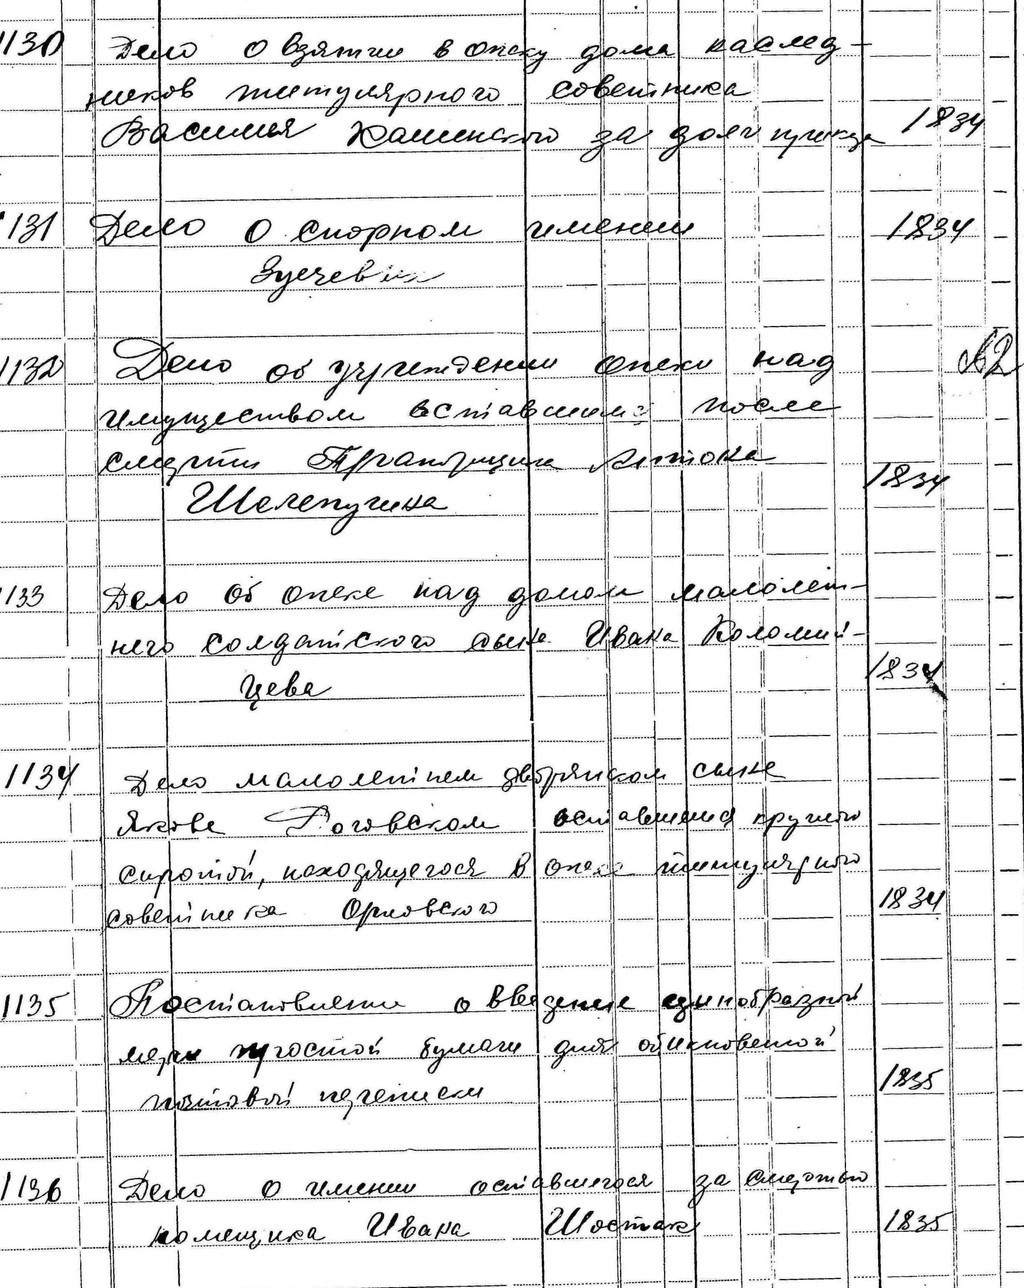 1130 Дело о взятии в опеку дома наслед-
ников титулярного советника
Василия Каминского за долг приказу 1834
1131 Дело о спорном имении 1834
1132 Дело об учреждении опеки над
имуществом оставшимся после
смерти Прапорщика Антона 1834
Шелепугина
1133 Дело об опеке над домом малолет-
него солдатского сына Ивана Коломий-
цева 1834
1134 Дело малолетнем дворянском сыне
Якове Роговском оставшемся круглою
сиротой, находящегося в опеке титулярного
советника Орловского 1834
1135 Постановление о введение единобразной
меры простой бумаги для обыкновенной
почтовой переписки 1835
1136 Дело о имении оставшегося за смертью
помещика Ивана Шостак 1835